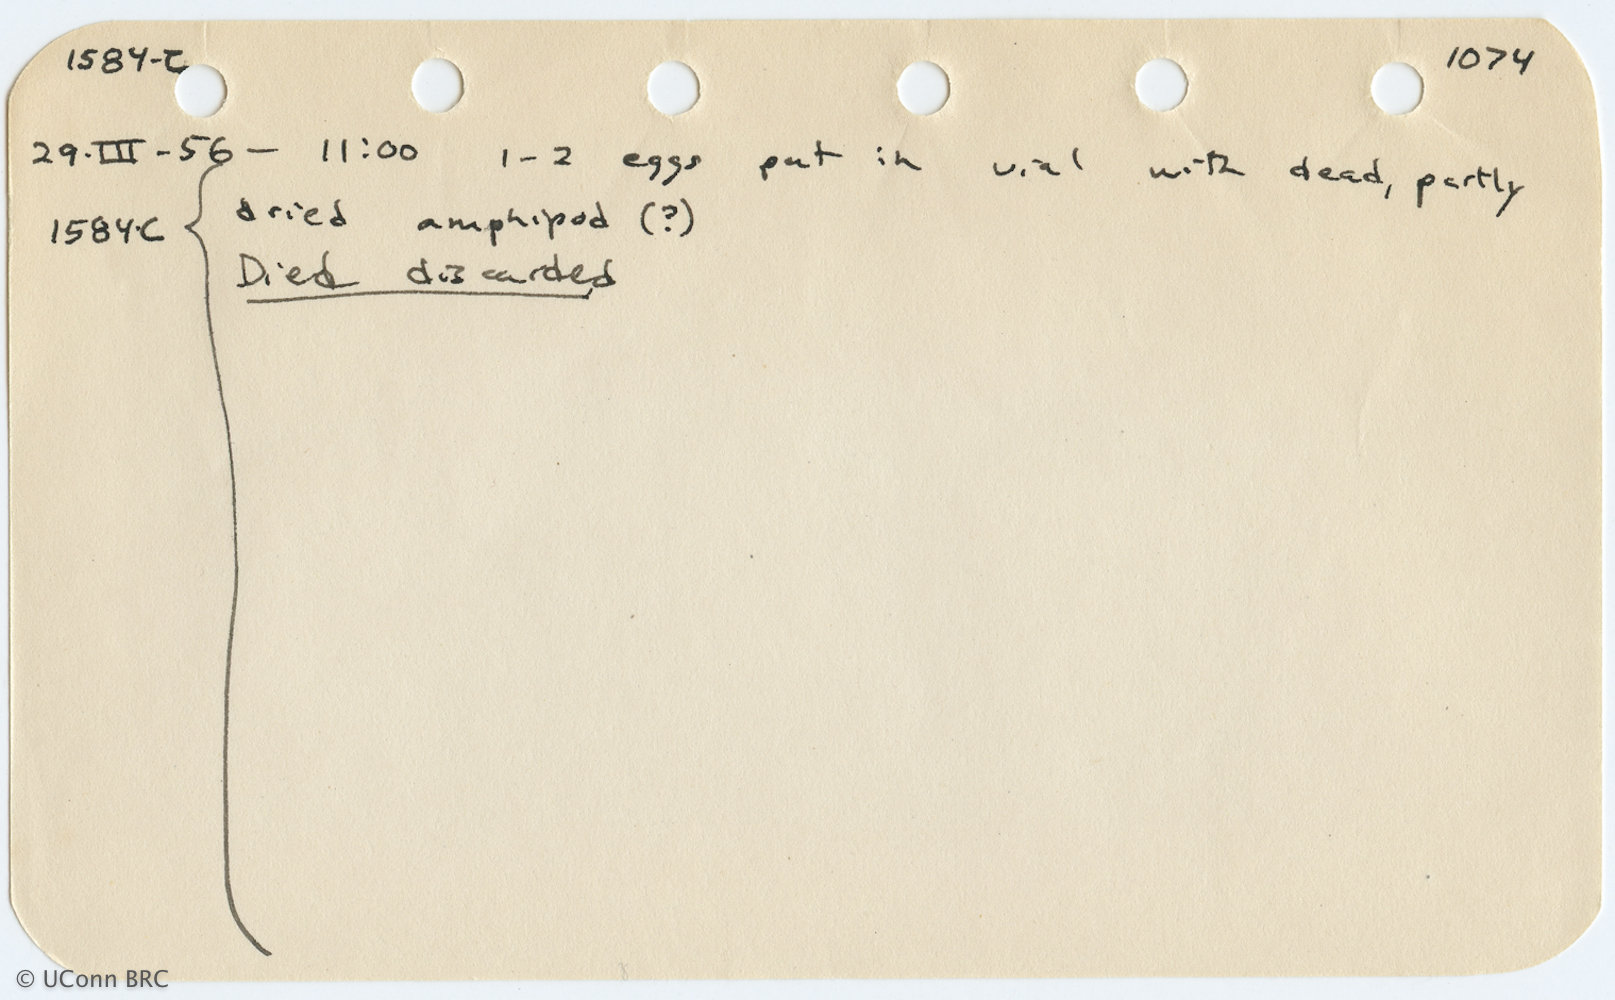 1584-C 1074
29·III-56 — 11:00 1-2 eggs put in vial with dead, partly
1584·C dried amphipod (?)
Died discarded
© UConn BRC